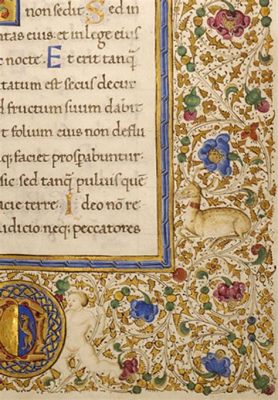 non sedit. Sed in
ntas eius et in lege eius
nocte. Et erit tanq̃
tatum est secus decur
d fructum suum dabit
t folium eius non deflu
q; faciet prosp̃abuntur.
sic sed tanq̃ puluis quẽ
acie terre. Ideo nõ re
udicio neq; peccatores